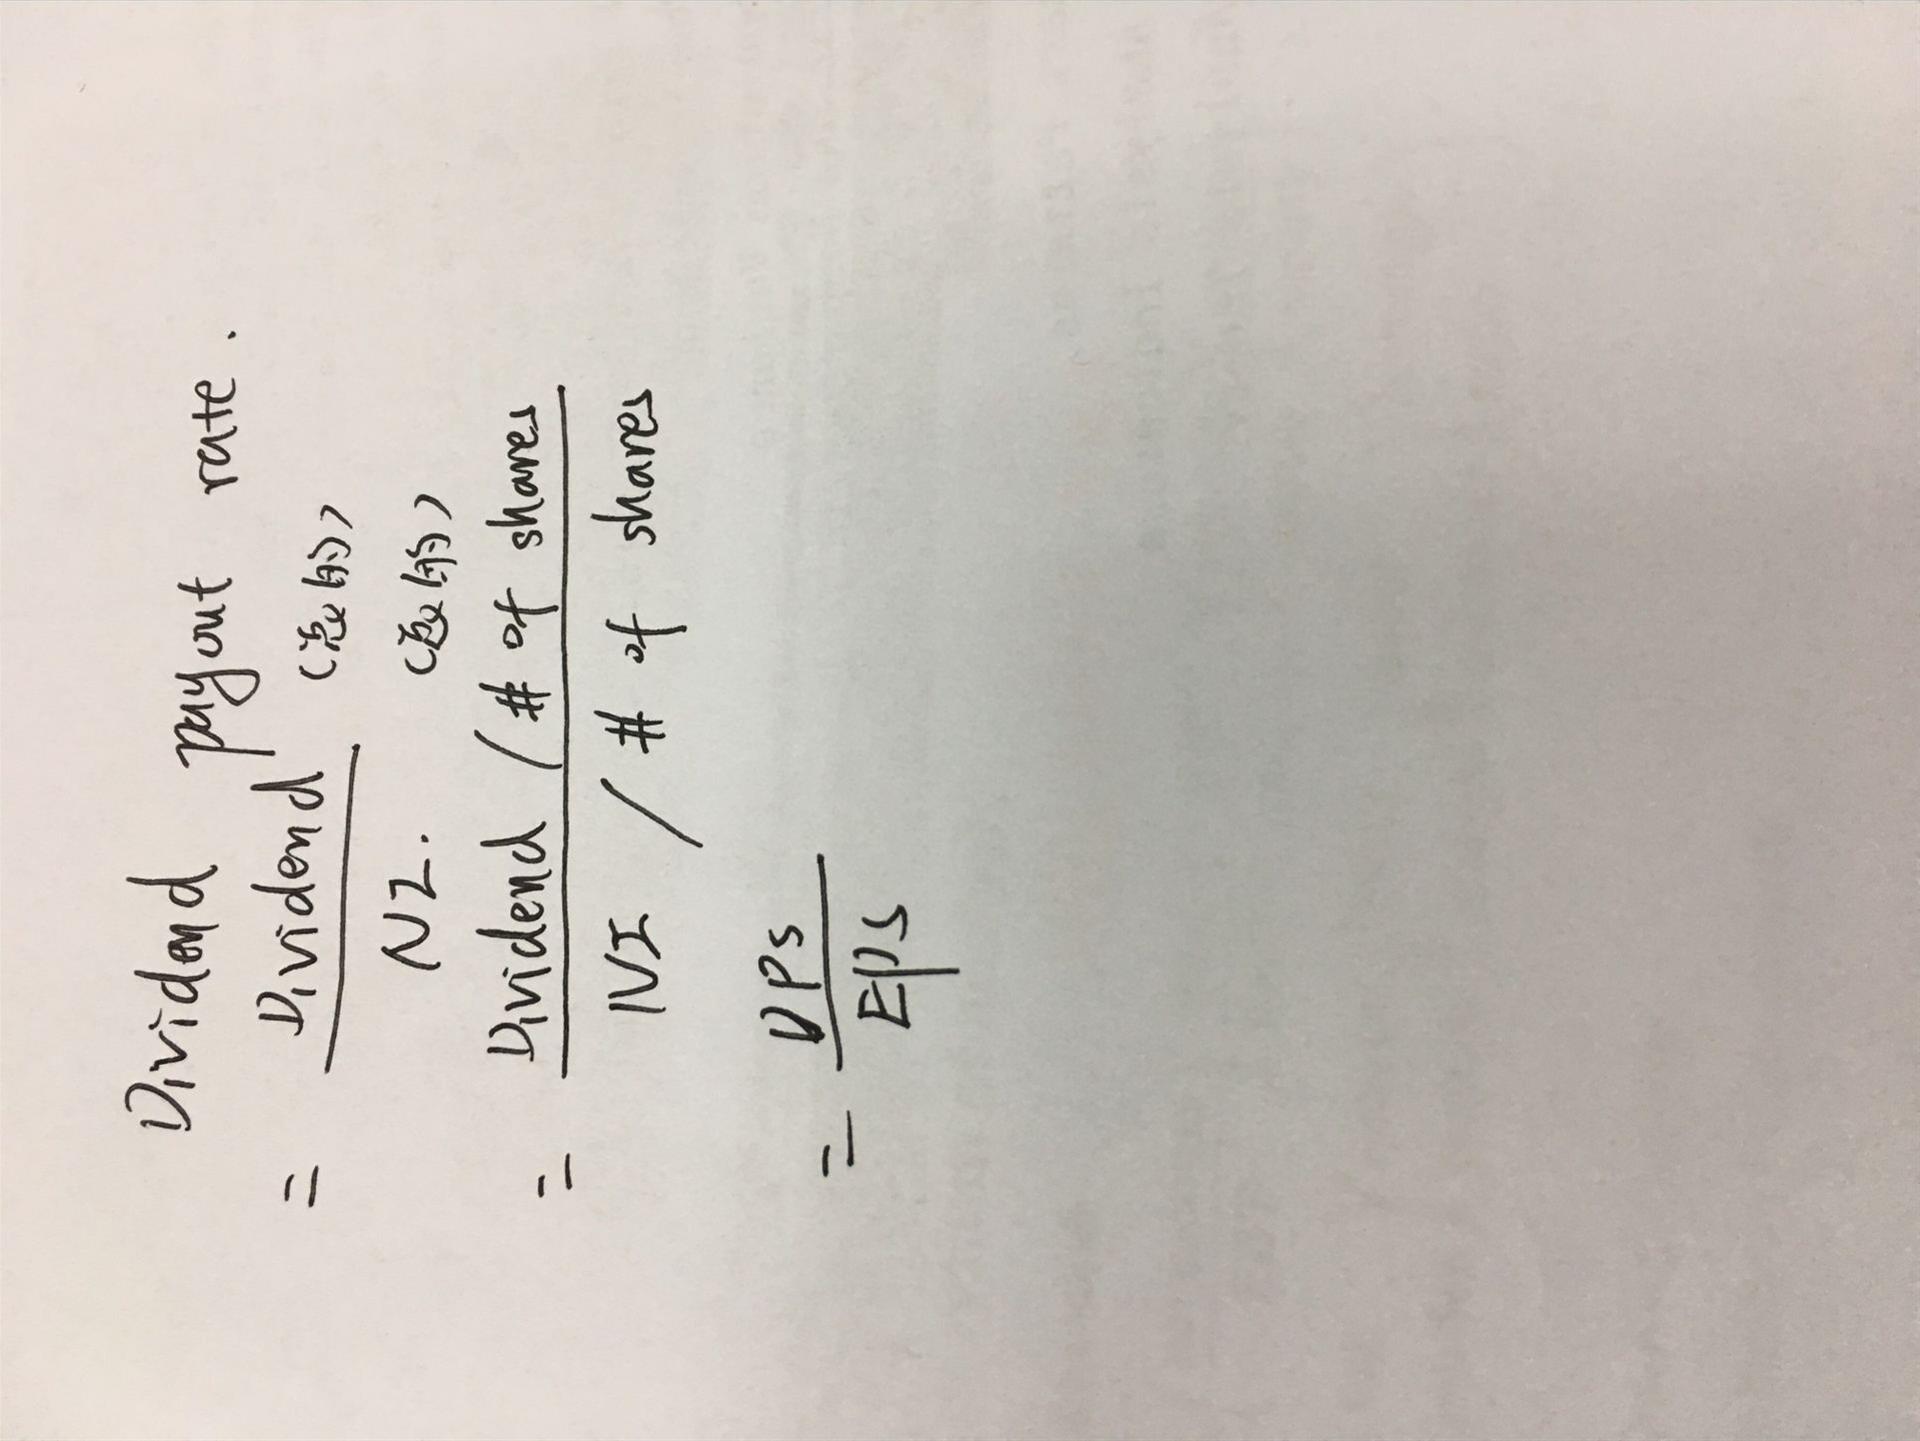 Dividend payout rate.
= Dividend (总的)
NI. (总的)
= Dividend / # of shares
NI / # of shares
= DPS
EPS